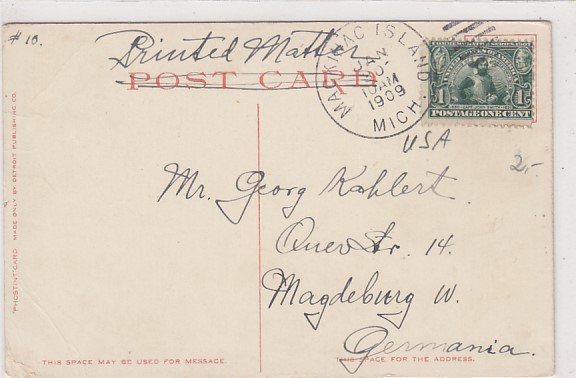 # 10.
Printed Matter
POST CARD
MACKINAC ISLAND
MICH.
JAN
10AM
1909
1
1
POSTAGE ONE CENT
USA
2,-
Mr. Georg Kahlert.
Quer Str. 14.
Magdeburg W.
Germania.
"PHOSTINT" CARD MADE ONLY BY DETROIT PUBLISHING CO.
THIS SPACE MAY BE USED FOR MESSAGE.
THIS SPACE FOR THE ADDRESS.